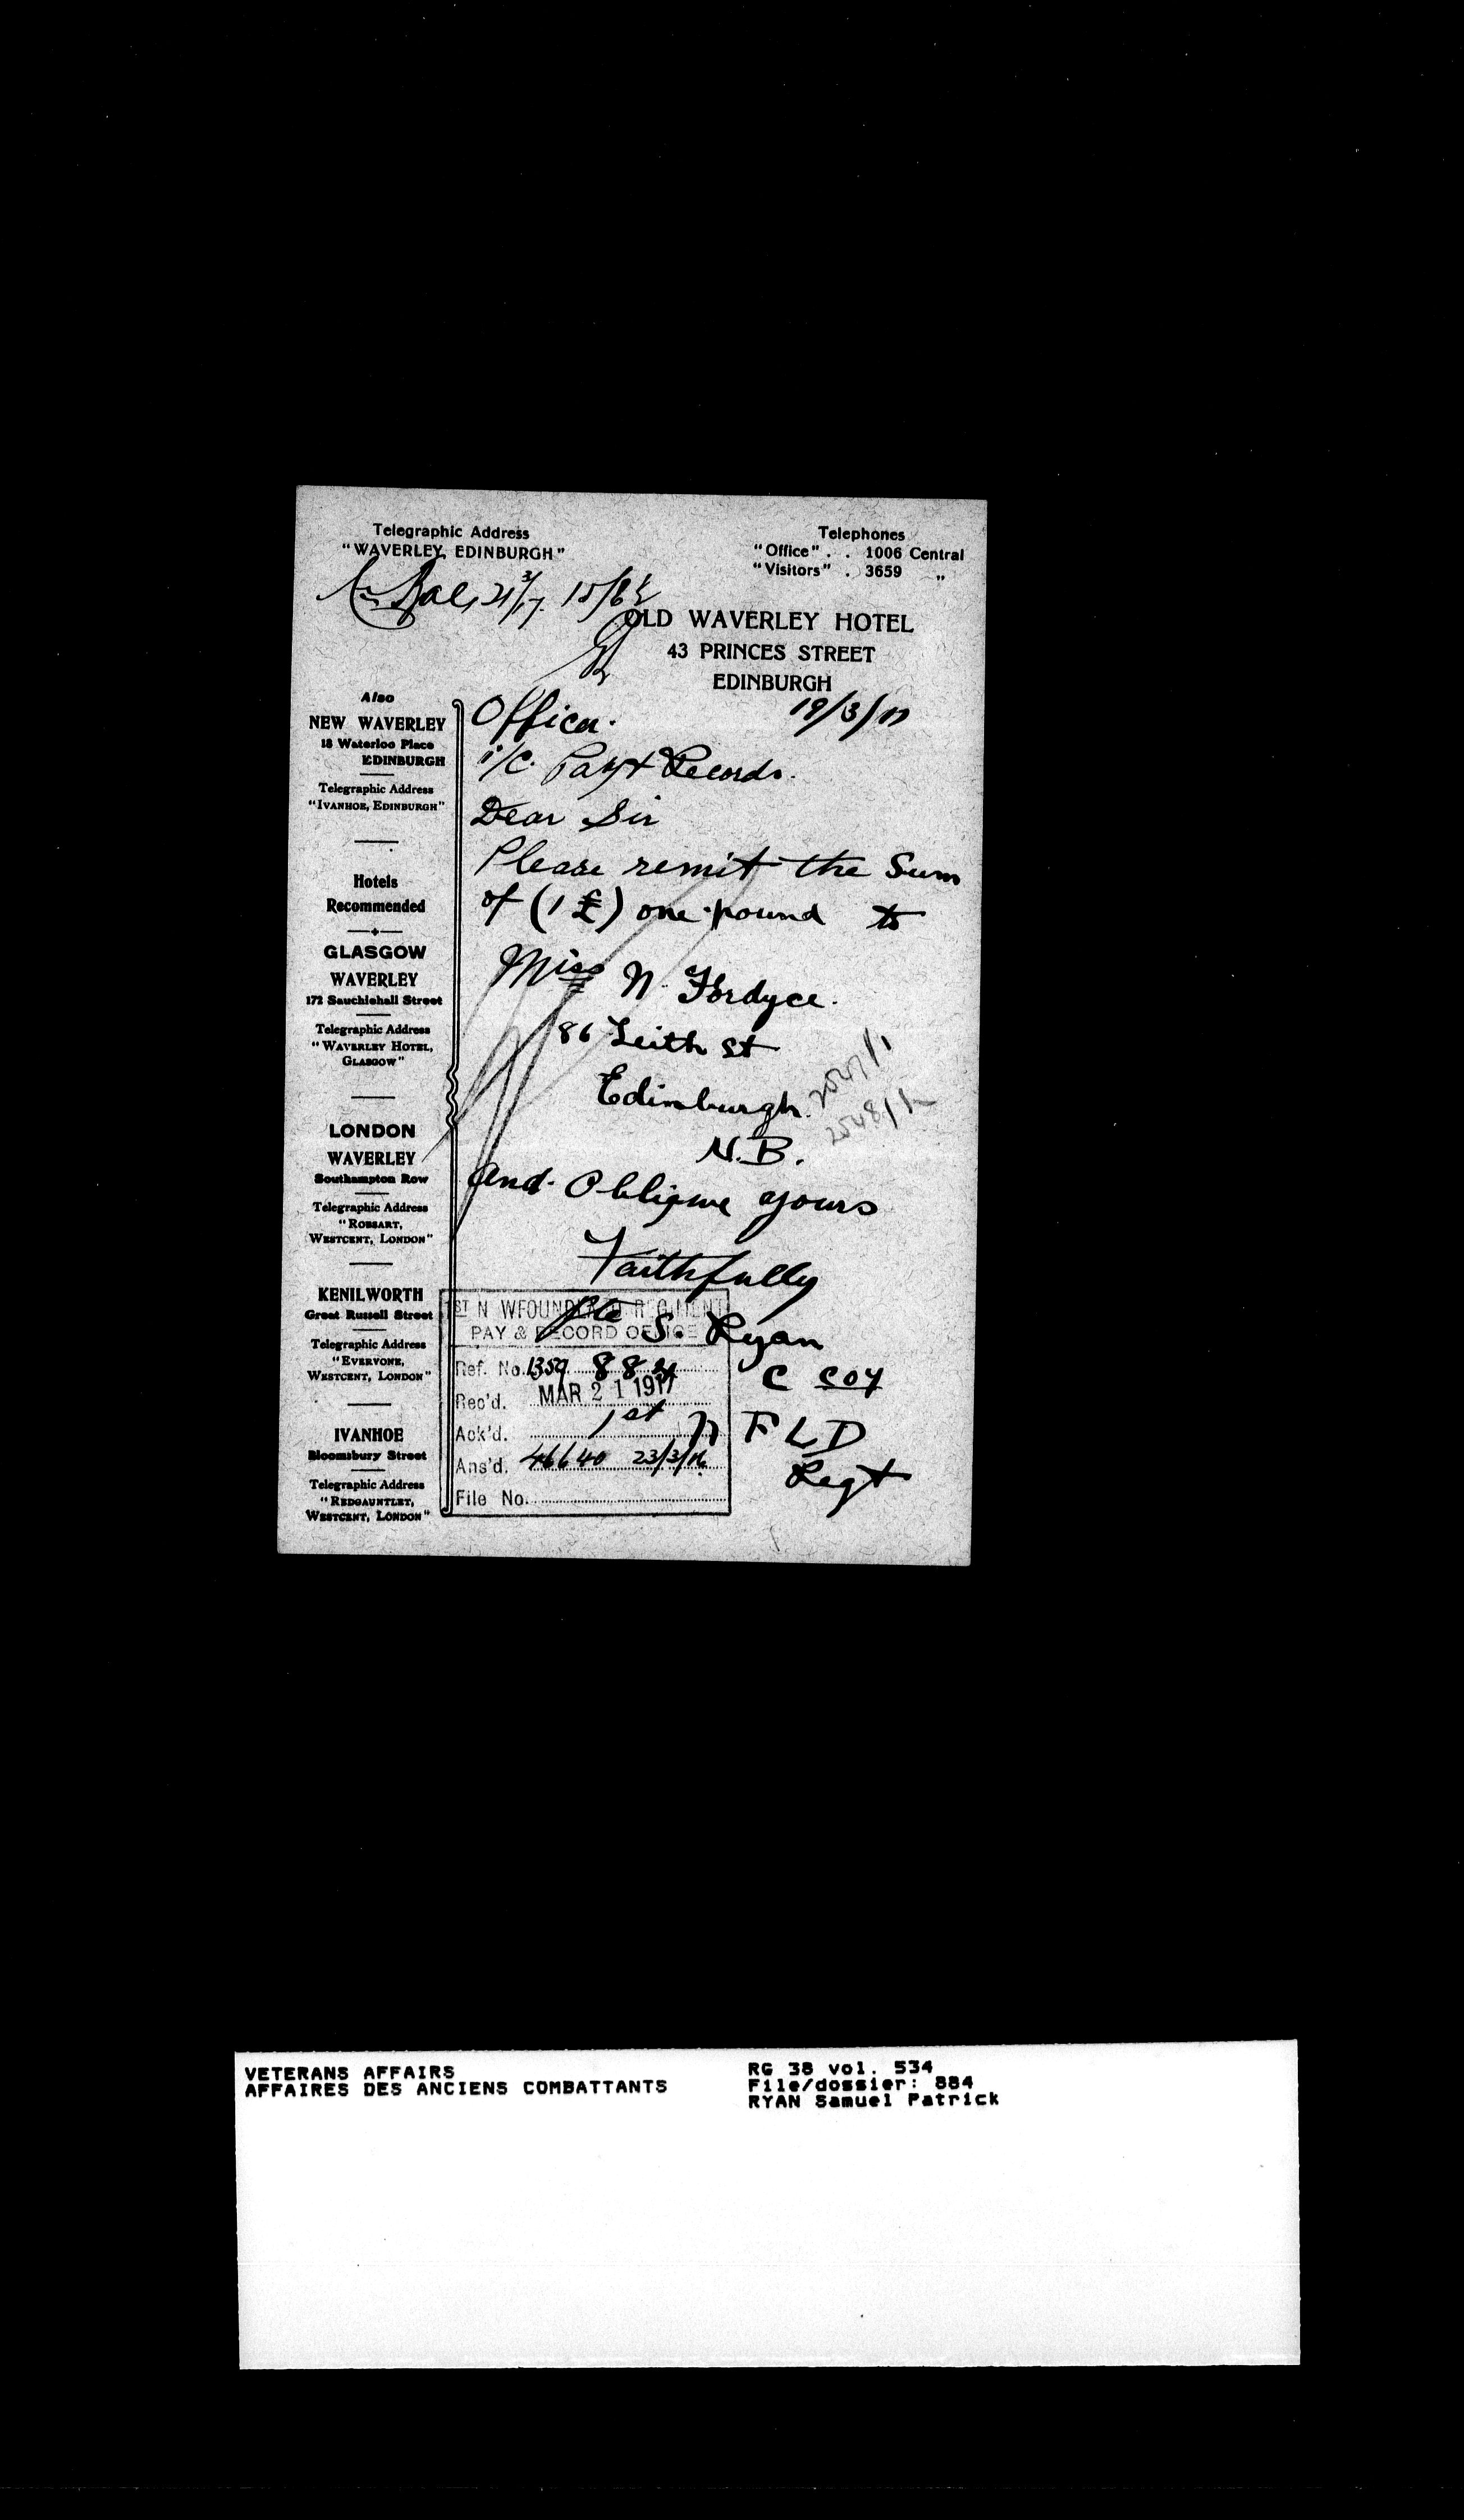 Telegraphic Address
"WAVERLEY, EDINBURGH"
Telephones
"Office" . . 1006 Central
"Visitors" . 3659 "
Bal, 21/3/17. 15/6½
OLD WAVERLEY HOTEL
43 PRINCES STREET
EDINBURGH
19/3/17
Also
NEW WAVERLEY
18 Waterloo Place
EDINBURGH
Telegraphic Address
"IVANHOE, EDINBURGH"
Hotels
Recommended
GLASGOW
WAVERLEY
172 Sauchiehall Street
Telegraphic Address
"WAVERLEY HOTEL,
GLASGOW"
LONDON
WAVERLEY
Southampton Row
Telegraphic Address
"ROBSART,
WESTCENT, LONDON"
KENILWORTH
Great Russell Street
Telegraphic Address
"EVERYONE,
WESTCENT, LONDON"
IVANHOE
Bloomsbury Street
Telegraphic Address
"REDGAUNTLET,
WESTCENT, LONDON"
Officer.
i/c. Pay & Records.
Dear Sir
Please remit the Sum
of (1 £) one pound to
Miss N. Fordyce.
86 Leith St
Edinburgh.
N.B.
2548/1
and. Oblige yours
Faithfully
Pte S. Ryan
884
C Coy
1st N F L D
Regt
1ST N WFOUNDLAND REGIMENT
PAY & RECORD OFFICE
Ref. No. 1359
Rec'd. MAR 21 1917
Ack'd.
Ans'd. 46640 23/3/16
File No.
VETERANS AFFAIRS
AFFAIRES DES ANCIENS COMBATTANTS
RG 38 vol. 534
File/dossier: 884
RYAN Samuel Patrick